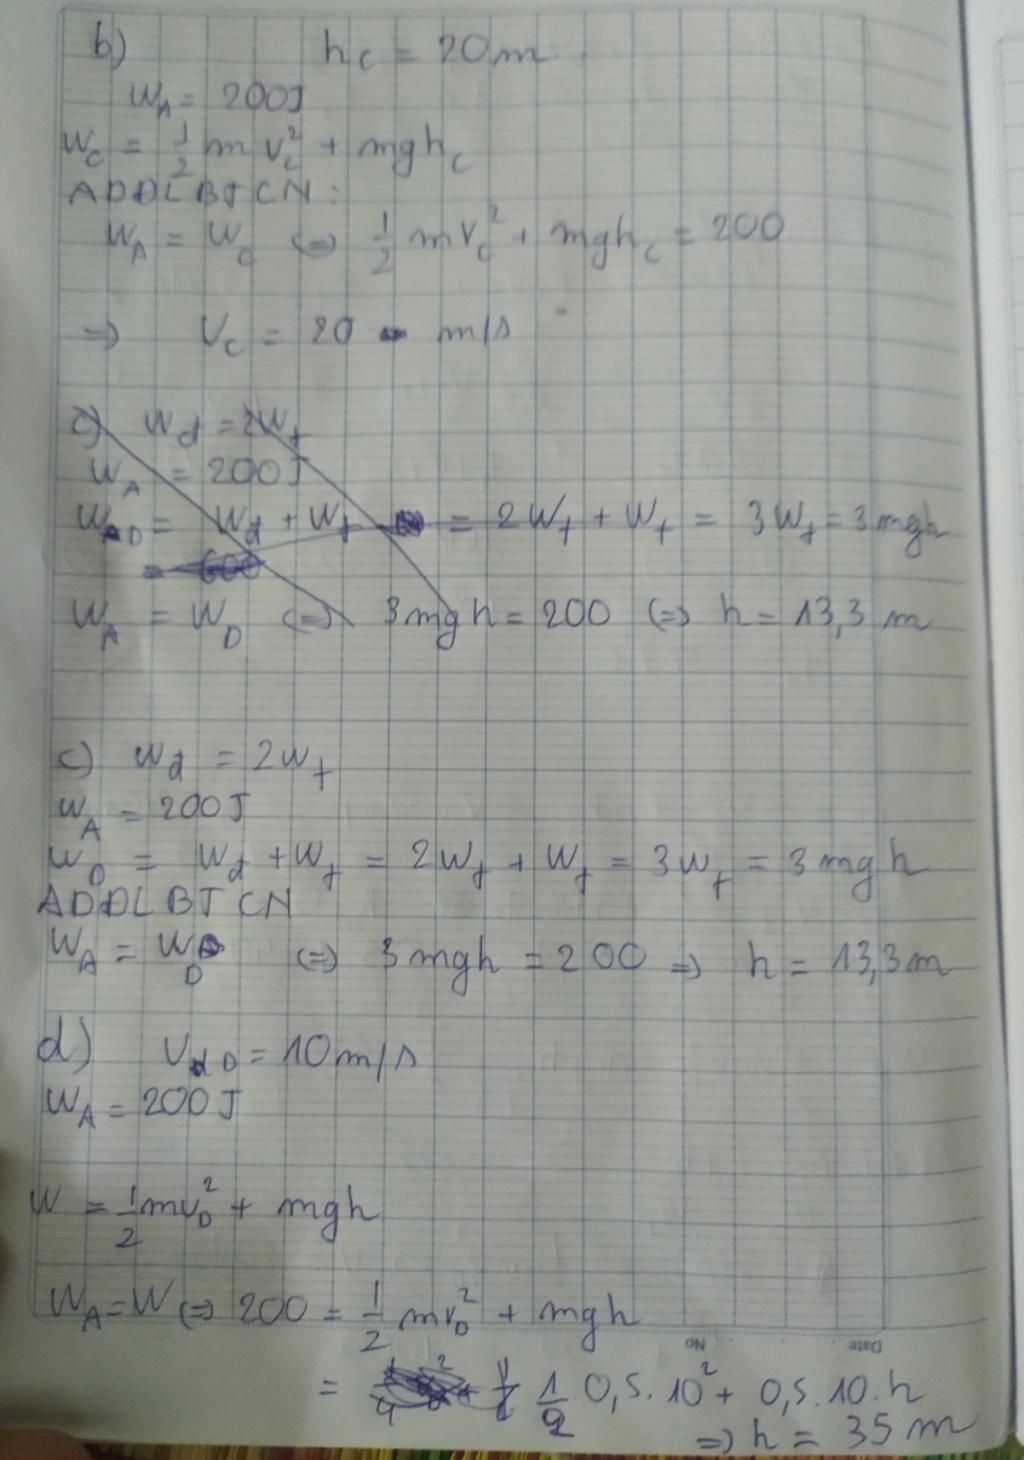 b) h_C = 20m
W_A = 200J
W_C = 1/2 m v_C^2 + mgh_C
ADĐLBTCN:
W_A = W_C <=> 1/2 mv_C^2 + mgh_C = 200
=> V_C = 20 m/s
c) W_đ = 2W_t
W_A = 200J
W_D = W_đ + W_t = 2W_t + W_t = 3W_t = 3mgh
= 600
W_A = W_D <=> 3mgh = 200 <=> h = 13,3 m
c) W_đ = 2W_t
W_A = 200J
W_D = W_đ + W_t = 2W_t + W_t = 3W_t = 3mgh
ADĐLBTCN
W_A = W_D <=> 3mgh = 200 => h = 13,3m
d) V_D = 10m/s
W_A = 200J
W = 1/2 mv_D^2 + mgh
W_A = W <=> 200 = 1/2 mv_D^2 + mgh
No Date
= 1/2 0,5.10^2 + 0,5.10.h
=> h = 35m